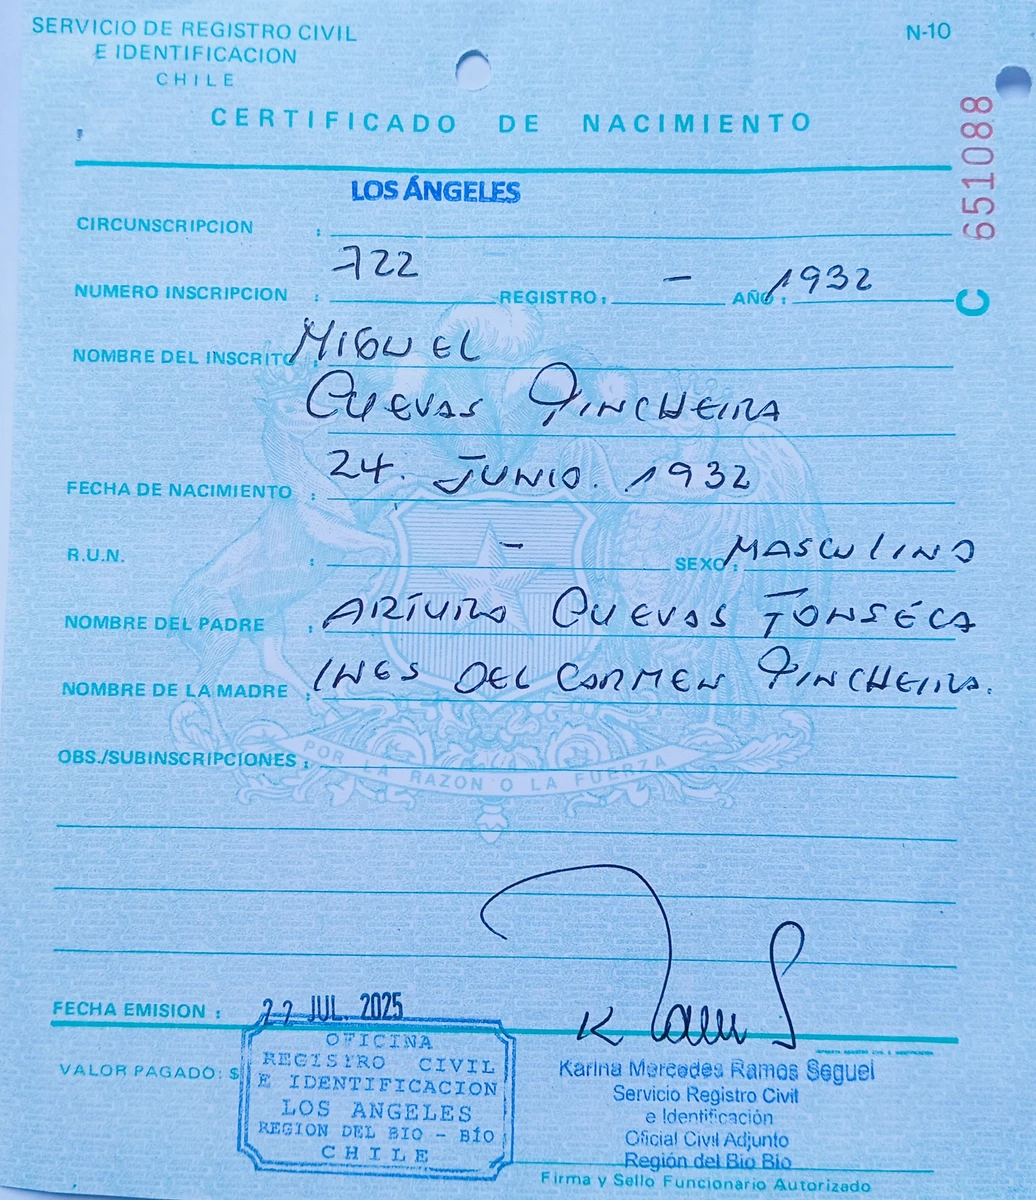 SERVICIO DE REGISTRO CIVIL
E IDENTIFICACION
CHILE
N-10
CERTIFICADO DE NACIMIENTO
651088
C
LOS ÁNGELES
CIRCUNSCRIPCION :
NUMERO INSCRIPCION : 722 REGISTRO : - AÑO : 1932
NOMBRE DEL INSCRITO : MIGUEL
CUEVAS PINCHEIRA
FECHA DE NACIMIENTO : 24. JUNIO. 1932
R.U.N. : - SEXO : MASCULINO
NOMBRE DEL PADRE : ARTURO CUEVAS FONSECA
NOMBRE DE LA MADRE : INES DEL CARMEN PINCHEIRA.
OBS./SUBINSCRIPCIONES :
POR LA RAZON O LA FUERZA
FECHA EMISION : 22 JUL. 2025
VALOR PAGADO: $
OFICINA
REGISTRO CIVIL
E IDENTIFICACION
LOS ANGELES
REGION DEL BIO - BÍO
CHILE
K Ramos
Karina Mercedes Ramos Seguel
Servicio Registro Civil
e Identificación
Oficial Civil Adjunto
Región del Bio Bio
Firma y Sello Funcionario Autorizado